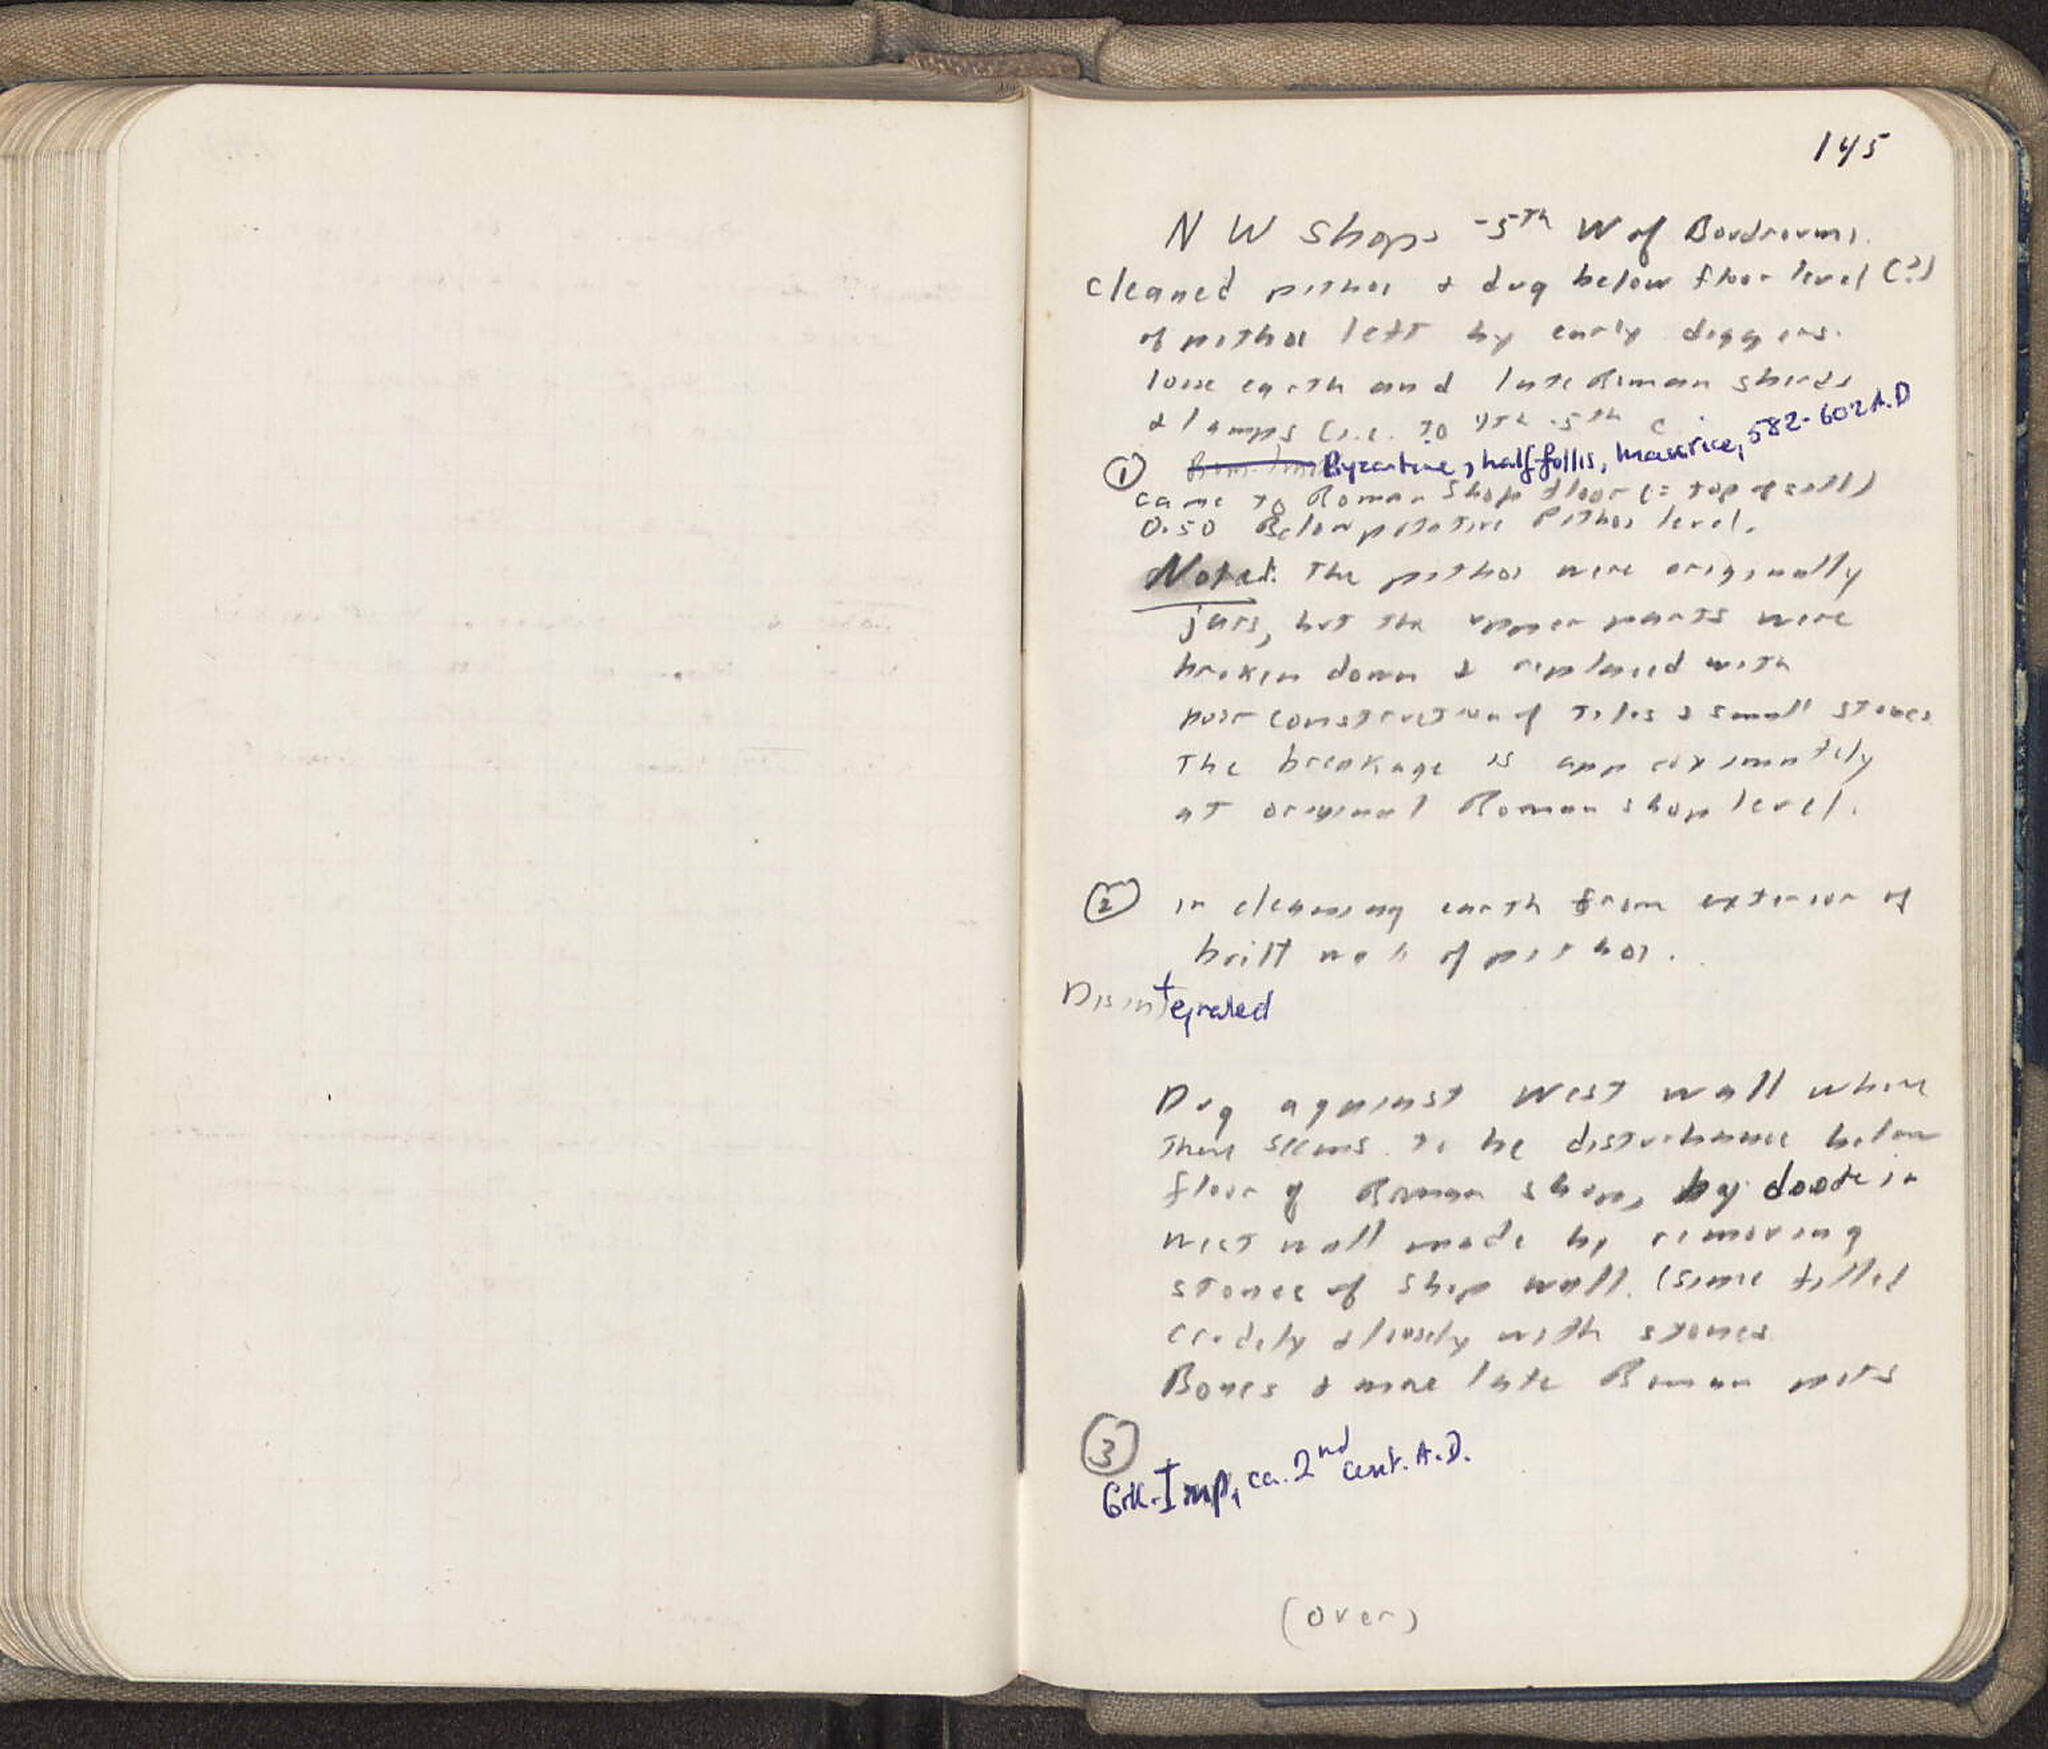 145
NW Shops -5th W of Boudroumi.
Cleaned pithos & dug below floor level (?)
of pithos left by early diggers.
loose earth and late Roman sherds
& lamps (i.e. to 4th-5th c
① Byzantine, half follis, Maurice, 582-602 A.D
came to Roman Shop floor (= top of sill)
0.50 Below putative Pithos level.
Note: The pithos were originally
jars, but the upper parts were
broken down & replaced with
poor construction of tiles & small stones
The breakage is approximately
at original Roman shop level.
② in cleaning earth from exterior of
built wall of pithos.
Disintegrated
Dug against West wall where
There seems to be disturbance below
floor of Roman shop, by door in
West wall made by removing
stones of shop wall. (Some filled
crudely & loosely with stones
Bones & more late Roman pots
③
Grk. Imp, ca. 2nd cent. A.D.
(over)